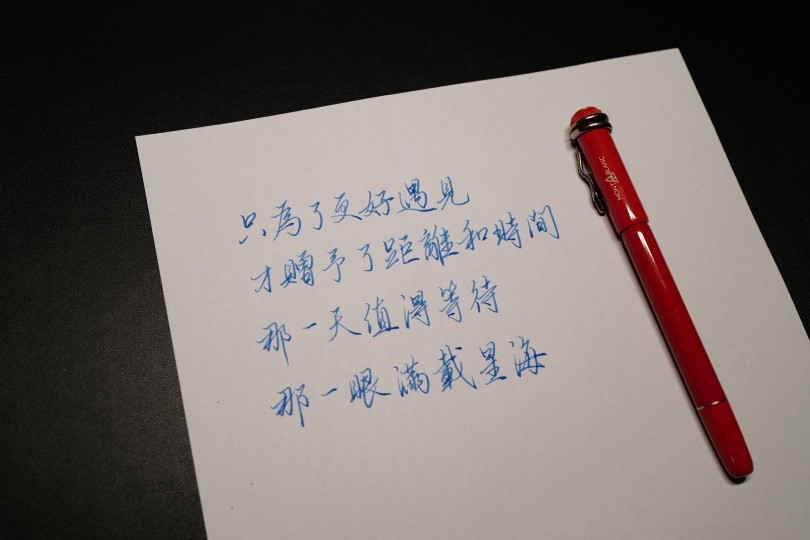 只為了更好遇見
才贈予了距離和時間
那一天值得等待
那一眼滿載星海
MONTBLANC